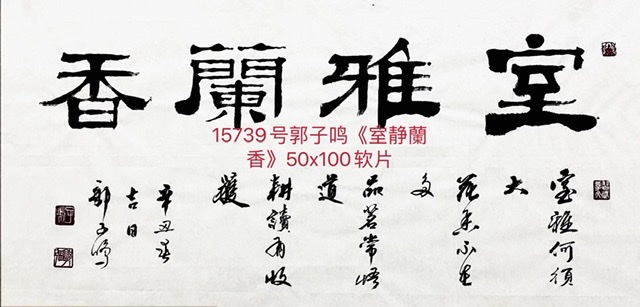 室雅蘭香
15739号郭子鸣《室静蘭
香》50x100软片
室雅何須
大
花香不在
多
品茗常悟
道
耕讀有收
獲
辛丑春
吉日
郭子鳴